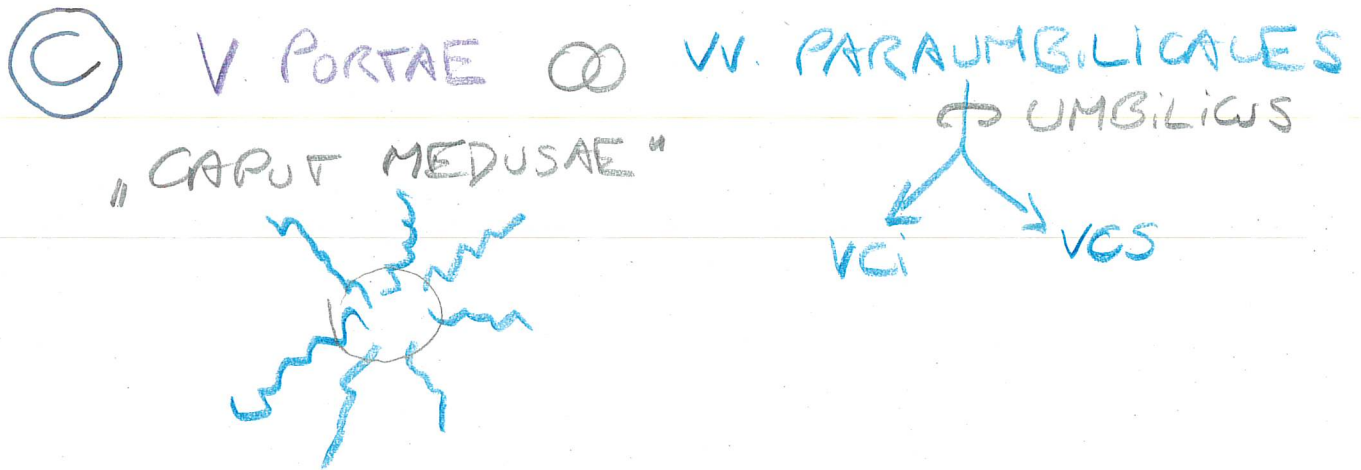 C V. PORTAE VV. PARAUMBiLiCALES
UMBiLiCUS
„CAPUT MEDUSAE“
VCi VCS